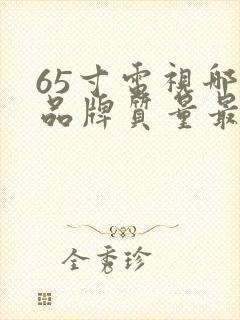 65寸電視哪
品牌質量最
全秀珍